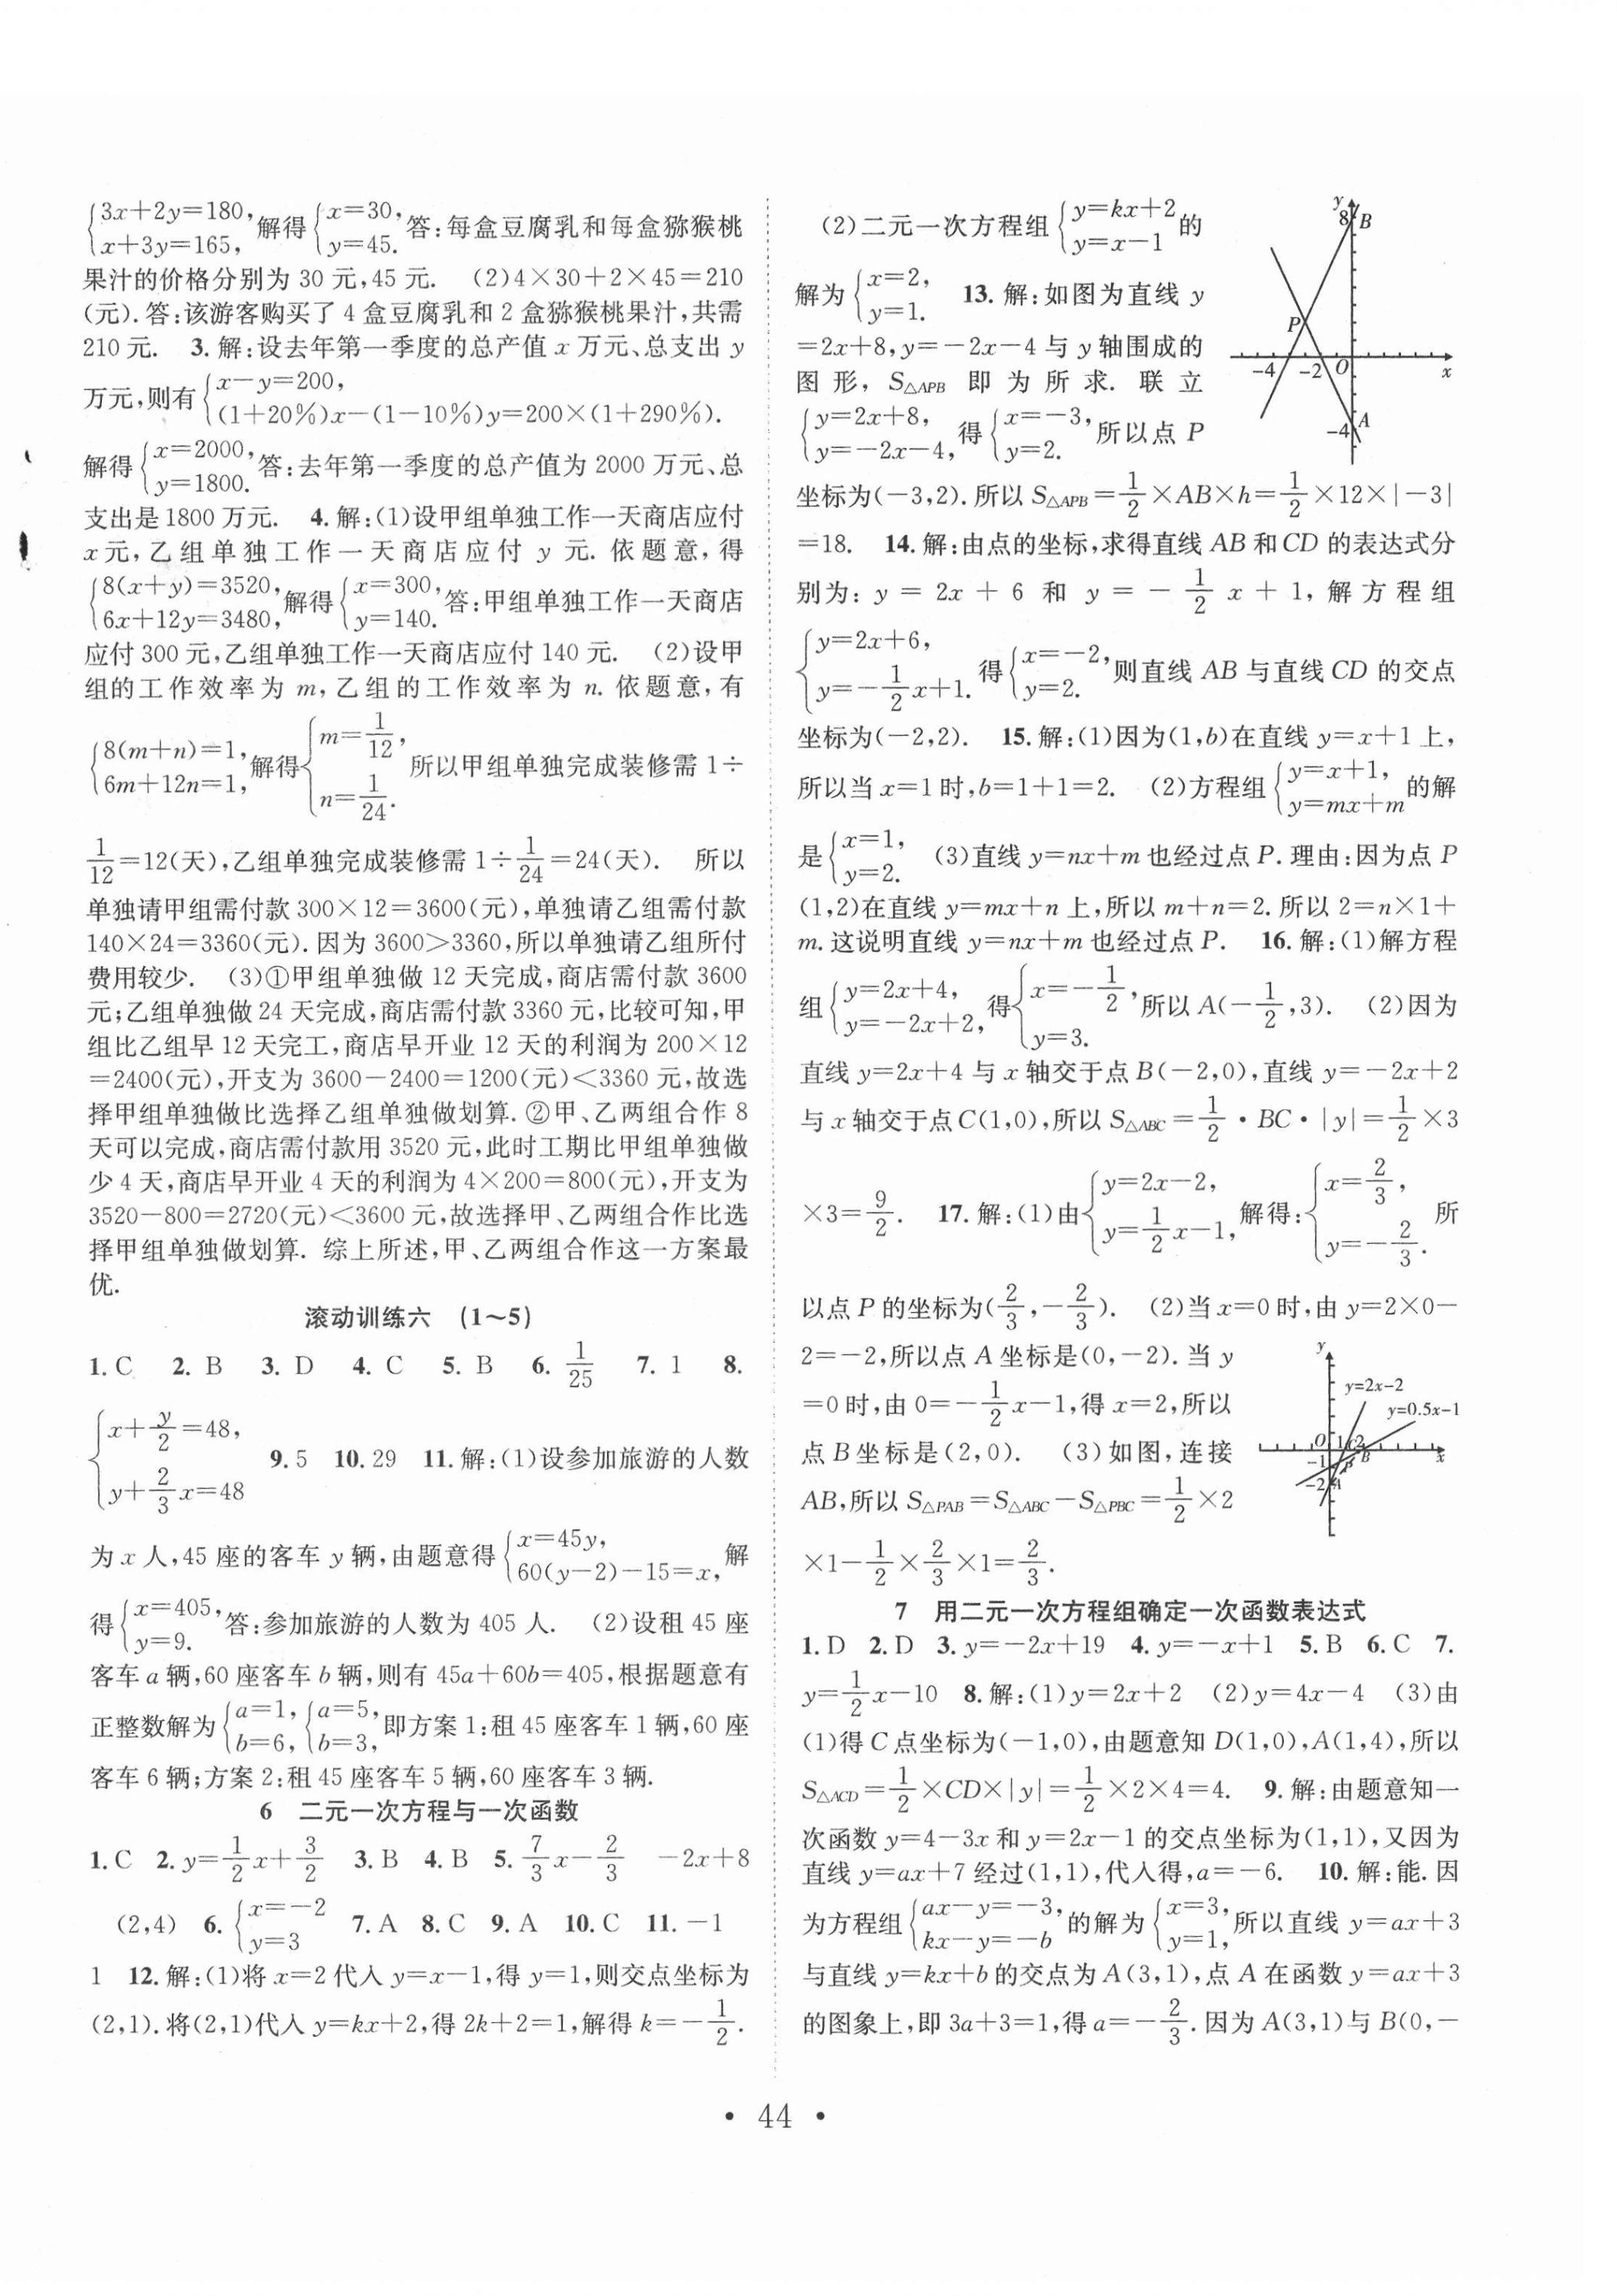 {3x+2y=180, x+3y=165, 解得{x=30, y=45. 答:每盒豆腐乳和每盒猕猴桃
果汁的价格分别为 30 元,45 元. (2)4×30+2×45=210
(元).答:该游客购买了 4 盒豆腐乳和 2 盒猕猴桃果汁,共需
210 元. 3.解:设去年第一季度的总产值 x 万元、总支出 y
万元,则有{x-y=200, (1+20%)x-(1-10%)y=200×(1+290%).
解得{x=2000, y=1800. 答:去年第一季度的总产值为 2000 万元、总
支出是 1800 万元. 4.解:(1)设甲组单独工作一天商店应付
x 元,乙组单独工作一天商店应付 y 元.依题意,得
{8(x+y)=3520, 6x+12y=3480, 解得{x=300, y=140. 答:甲组单独工作一天商店
应付 300 元,乙组单独工作一天商店应付 140 元. (2)设甲
组的工作效率为 m,乙组的工作效率为 n.依题意,有
{8(m+n)=1, 6m+12n=1, 解得{m=1/12, n=1/24. 所以甲组单独完成装修需 1÷
1/12=12(天),乙组单独完成装修需 1÷1/24=24(天). 所以
单独请甲组需付款 300×12=3600(元),单独请乙组需付款
140×24=3360(元).因为 3600>3360,所以单独请乙组所付
费用较少. (3)①甲组单独做 12 天完成,商店需付款 3600
元;乙组单独做 24 天完成,商店需付款 3360 元,比较可知,甲
组比乙组早 12 天完工,商店早开业 12 天的利润为 200×12
=2400(元),开支为 3600-2400=1200(元)<3360 元,故选
择甲组单独做比选择乙组单独做划算.②甲、乙两组合作 8
天可以完成,商店需付款用 3520 元,此时工期比甲组单独做
少 4 天,商店早开业 4 天的利润为 4×200=800(元),开支为
3520-800=2720(元)<3600 元,故选择甲、乙两组合作比选
择甲组单独做划算. 综上所述,甲、乙两组合作这一方案最
优.
滚动训练六 (1~5)
1. C 2. B 3. D 4. C 5. B 6. 1/25 7. 1 8.
{x+y/2=48, y+2/3x=48 9. 5 10. 29 11.解:(1)设参加旅游的人数
为 x 人,45 座的客车 y 辆,由题意得{x=45y, 60(y-2)-15=x, 解
得{x=405, y=9. 答:参加旅游的人数为 405 人. (2)设租 45 座
客车 a 辆,60 座客车 b 辆,则有 45a+60b=405,根据题意有
正整数解为{a=1, b=6, {a=5, b=3, 即方案 1:租 45 座客车 1 辆,60 座
客车 6 辆;方案 2:租 45 座客车 5 辆,60 座客车 3 辆.
6 二元一次方程与一次函数
1. C 2. y=1/2x+3/2 3. B 4. B 5. 7/3x-2/3 -2x+8
(2,4) 6. {x=-2 y=3 7. A 8. C 9. A 10. C 11. -1
1 12.解:(1)将 x=2 代入 y=x-1,得 y=1,则交点坐标为
(2,1).将(2,1)代入 y=kx+2,得 2k+2=1,解得 k=-1/2.
(2)二元一次方程组{y=kx+2 y=x-1 的
解为{x=2, y=1. 13.解:如图为直线 y
=2x+8,y=-2x-4 与 y 轴围成的
图形,S△APB 即为所求. 联立
{y=2x+8, y=-2x-4, 得{x=-3, y=2. 所以点 P
y
8
B
P
-4
-2
O
x
-4
A
坐标为(-3,2).所以 S△APB=1/2×AB×h=1/2×12×|-3|
=18. 14.解:由点的坐标,求得直线 AB 和 CD 的表达式分
别为:y=2x+6 和 y=-1/2x+1,解方程组
{y=2x+6, y=-1/2x+1. 得{x=-2, y=2. 则直线 AB 与直线 CD 的交点
坐标为(-2,2). 15.解:(1)因为(1,b)在直线 y=x+1 上,
所以当 x=1 时,b=1+1=2. (2)方程组{y=x+1, y=mx+m 的解
是{x=1, y=2. (3)直线 y=nx+m 也经过点 P.理由:因为点 P
(1,2)在直线 y=mx+n 上,所以 m+n=2.所以 2=n×1+
m.这说明直线 y=nx+m 也经过点 P. 16.解:(1)解方程
组{y=2x+4, y=-2x+2, 得{x=-1/2, y=3. 所以 A(-1/2,3). (2)因为
直线 y=2x+4 与 x 轴交于点 B(-2,0),直线 y=-2x+2
与 x 轴交于点 C(1,0),所以 S△ABC=1/2·BC·|y|=1/2×3
×3=9/2. 17.解:(1)由{y=2x-2, y=1/2x-1, 解得:{x=2/3, y=-2/3. 所
以点 P 的坐标为(2/3,-2/3). (2)当 x=0 时,由 y=2×0-
2=-2,所以点 A 坐标是(0,-2).当 y
=0 时,由 0=-1/2x-1,得 x=2,所以
点 B 坐标是(2,0). (3)如图,连接
AB,所以 S△PAB=S△ABC-S△PBC=1/2×2
×1-1/2×2/3×1=2/3.
y
y=2x-2
y=0.5x-1
O
1
C
2
B
x
-1
P
-2
A
7 用二元一次方程组确定一次函数表达式
1. D 2. D 3. y=-2x+19 4. y=-x+1 5. B 6. C 7.
y=1/2x-10 8.解:(1)y=2x+2 (2)y=4x-4 (3)由
(1)得 C 点坐标为(-1,0),由题意知 D(1,0),A(1,4),所以
S△ACD=1/2×CD×|y|=1/2×2×4=4. 9.解:由题意知一
次函数 y=4-3x 和 y=2x-1 的交点坐标为(1,1),又因为
直线 y=ax+7 经过(1,1),代入得,a=-6. 10.解:能.因
为方程组{ax-y=-3, kx-y=-b 的解为{x=3, y=1, 所以直线 y=ax+3
与直线 y=kx+b 的交点为 A(3,1),点 A 在函数 y=ax+3
的图象上,即 3a+3=1,得 a=-2/3.因为 A(3,1)与 B(0,-
· 44 ·